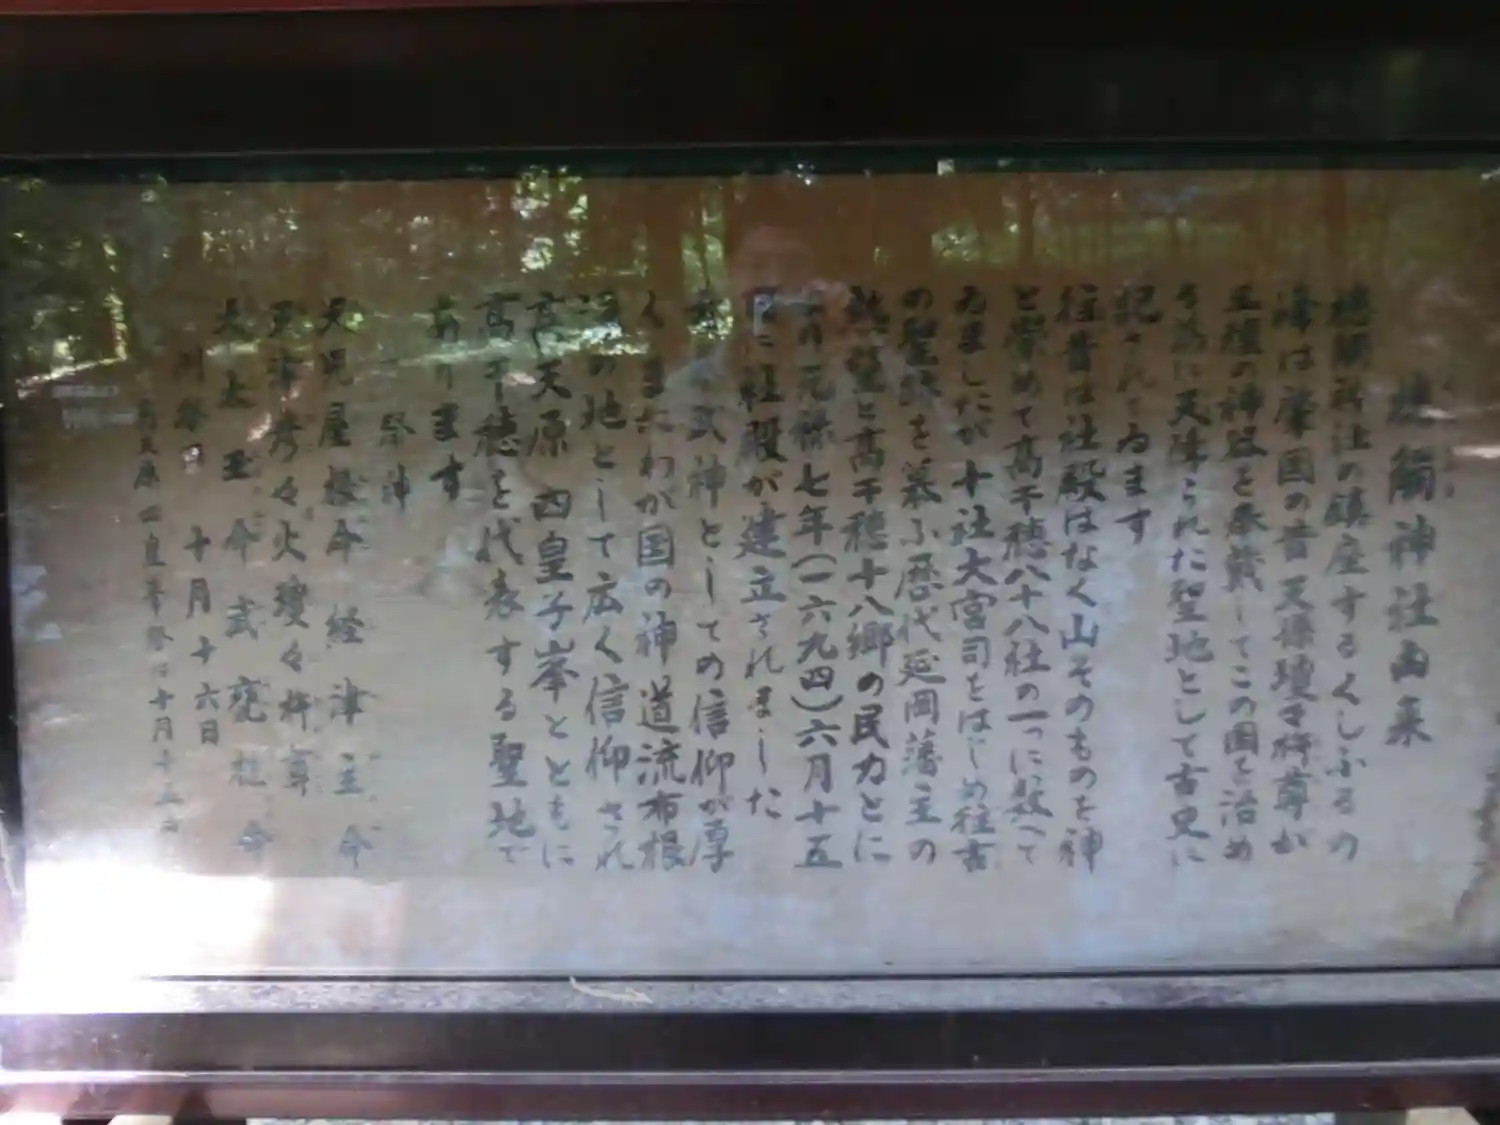 槵觸神社由来
槵觸神社の鎮座するくしふるの
峰は肇国の昔天孫瓊々杵尊が
三種の神器を奉戴してこの国を治め
る為に天降られた聖地として古史に
記されてゐます
往昔は社殿はなく山そのものを神
と崇めて高千穂八十八社の一つに数へて
ゐましたが十社大宮司をはじめ往古
の聖跡を慕ふ歴代延岡藩主の
熱望と高千穂十八郷の民力とに
より元禄七年(一六九四)六月十五
日に社殿が建立されました
武神としての信仰が厚
くまたわが国の神道流布根
源の地として広く信仰され
高天原 四皇子峯とともに
高千穂を代表する聖地で
あります
祭神
天児屋根命 経津主命
天津彦々火瓊々杵尊
太玉命 武甕槌命
例祭日 十月十六日
高天原四皇子峯祭は十月十五日